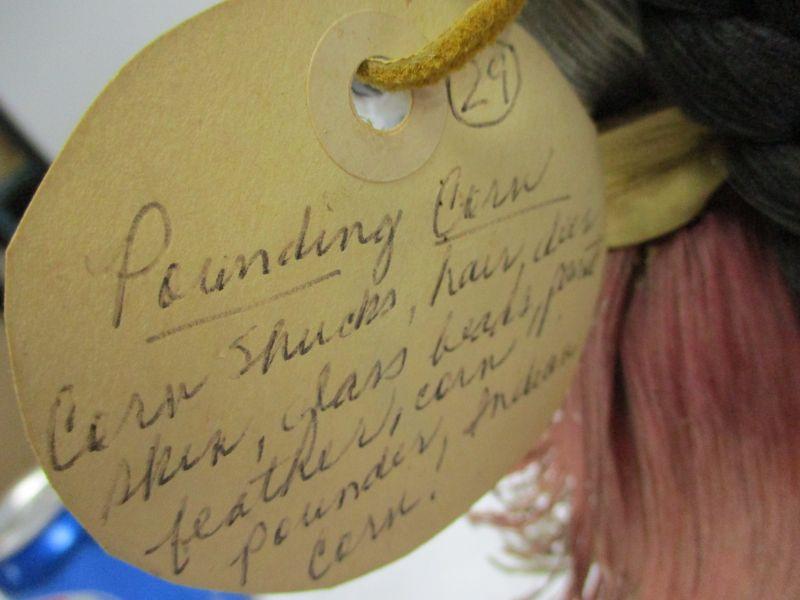 29
Pounding Corn
Corn Shucks, hair, deer
skin, glass beads, paint
feather, corn
pounder, Indian
corn.